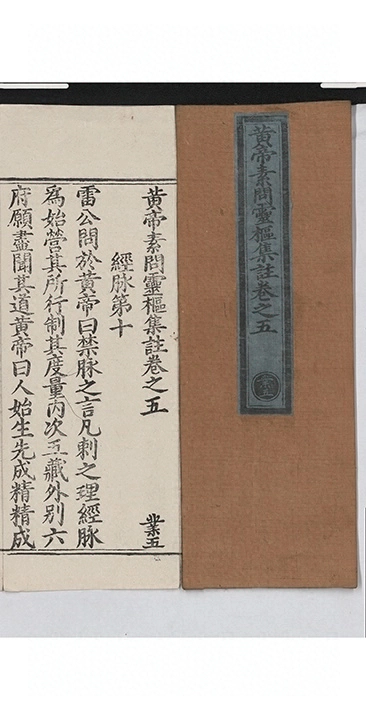 黄帝素問靈樞集註卷之五
黄帝素問靈樞集註卷之五 業五
經脉第十
雷公問於黄帝曰禁脉之言凡刺之理經脉
爲始營其所行制其度量内次五藏外别六
府願盡聞其道黄帝曰人始生先成精精成